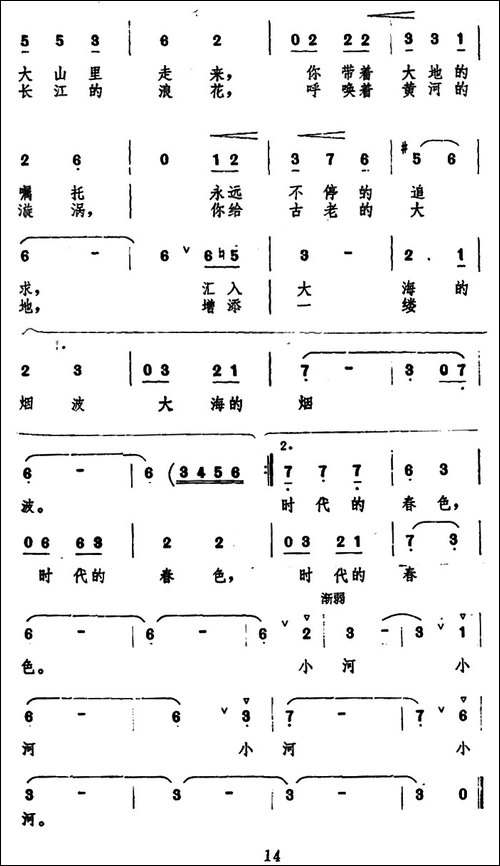 5 5 3 | 6 2 | 02 22 | 3 3 1
大山里 走来， 你带着 大地的
长江的 浪花， 呼唤着 黄河的
2 6 | 0 12 | 3 7 6 | #5 6
嘱托 永远 不停的 追
漩涡， 你给 古老的 大
6 - | 6 ∨ 6♮5 | 3 - | 2. 1
求， 汇入 大 海的
地， 增添 一 缕
1.
2 3 | 03 21 | 7 - | 3 07
烟波 大海的 烟
2.
6 - | 6 (3456 :‖ 7 7 7 | 6 3
波。 时代的 春色，
06 63 | 2 2 | 03 21 | 7 3
时代的 春色， 时代的 春
渐弱
6 - | 6 - | 6 ∨ 2 | 3 - | 3 ∨ 1
色。 小 河 小
6 - | 6 ∨ 3 | 7 - | 7 ∨ 6
河 小 河 小
3 - | 3 - | 3 - | 3 0 ‖
河。
14